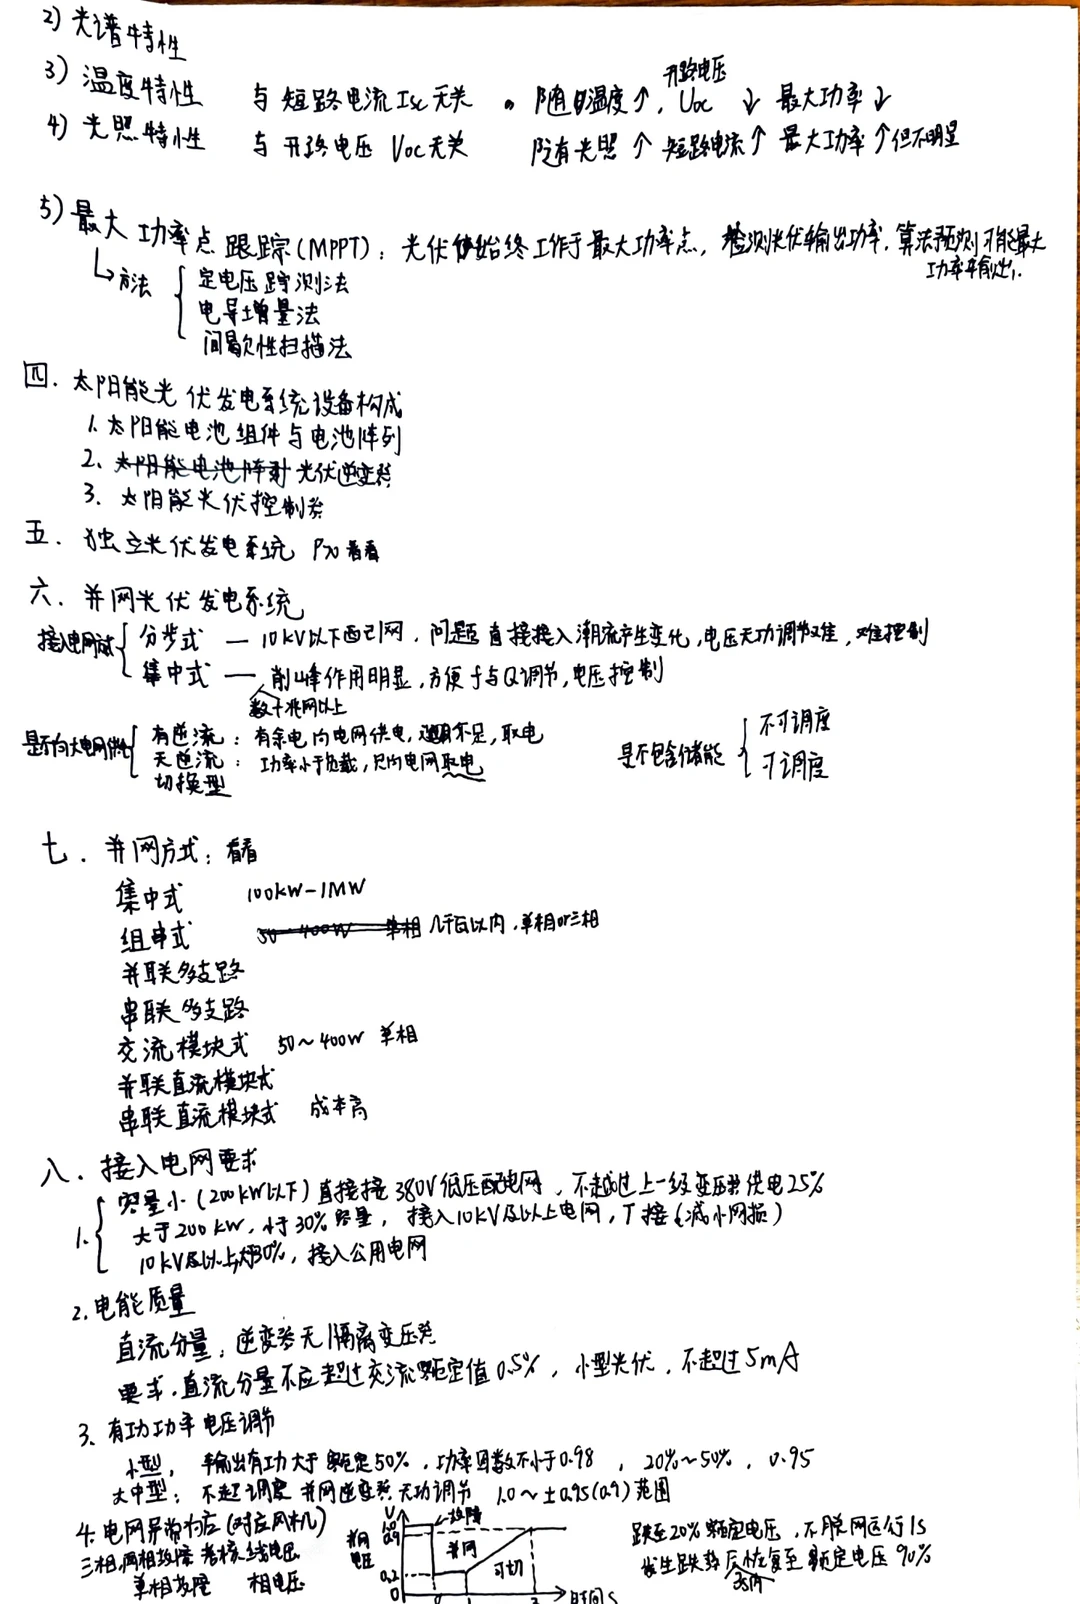 2) 光谱特性
3) 温度特性 与短路电流Isc无关 。随温度↑, 开路电压 Uoc ↓ 最大功率↓
4) 光照特性 与开路电压 Voc无关 随有光照↑ 短路电流↑ 最大功率↑但不明显
5) 最大功率点跟踪(MPPT): 光伏始终工作于最大功率点, 检测光伏输出功率, 算法预测可能最大功率输出.
↳方法 { 定电压跟测法
电导增量法
间歇性扫描法
四. 太阳能光伏发电系统设备构成
1. 太阳能电池组件与电池阵列
2. 太阳能电池阵 光伏逆变器
3. 太阳能光伏控制器
五. 独立光伏发电系统 P70看看
六. 并网光伏发电系统
接入电网 { 分步式 — 10kV以下配网, 问题 直接接入潮流产生变化, 电压无功调节难, 难控制
集中式 — 削峰作用明显, 方便于与Q调节, 电压控制
数十兆网以上
是否向大电网供 { 有逆流: 有余电向电网供电, 不足, 取电
无逆流: 功率小于负载, 只向电网取电
切换型
是不包含储能 { 不可调度
可调度
七. 并网方式: 看看
集中式 100kW-1MW
组串式 50 400W 单相 几千瓦以内, 单相or三相
并联多支路
串联多支路
交流模块式 50~400W 单相
并联直流模块式
串联直流模块式 成本高
八. 接入电网要求
1. { 容量小(200kW以下)直接接380V低压配电网, 不越过上一级变压器供电25%
大于200kW, 小于30%容量, 接入10kV及以上电网, T接(减小网损)
10kV及以上, 30%, 接入公用电网
2. 电能质量
直流分量: 逆变器无隔离变压器
要求. 直流分量不应超过交流额定值0.5%, 小型光伏, 不超过5mA
3. 有功功率电压调节
小型, 输出有功大于额定50%, 功率因数不小于0.98, 20%~50%, 0.95
大中型: 不超调度 并网逆变器无功调节 1.0~±0.95(0.9)范围
4. 电网异常响应(对应风机)
三相,两相故障 考核线电压
单相故障 相电压
并网电压 0.9 0.2 0 故障 并网 可切 0 1 3 时间s
跌至20%额定电压, 不脱网运行1s
发生跌势后恢复至额定电压90%
3s内